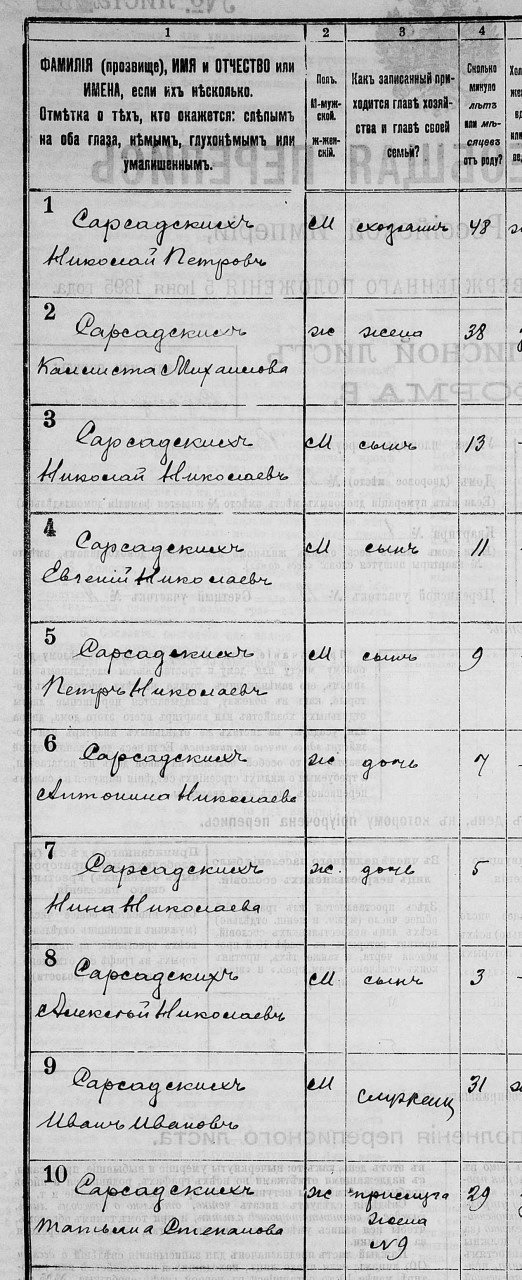 1
2
3
4
ФАМИЛІЯ (прозвище), ИМЯ и ОТЧЕСТВО или
ИМЕНА, если ихъ нѣсколько.
Отмѣтка о тѣхъ, кто окажется: слѣпымъ
на оба глаза, нѣмымъ, глухонѣмымъ или
умалишеннымъ.
Полъ.
М-муж-
ской.
ж-жен-
скій.
Какъ записанный при-
ходится главѣ хозяй-
ства и главѣ своей
семьи?
Сколько
минуло
лѣтъ
или мѣ-
сяцевъ
отъ роду?
1
Сарсадскихъ М 48
Николай Петровъ
2
Сарсадскихъ ж жена 38
Михаилова
3
Сарсадскихъ М сынъ 13
Николай Николаевъ
4
Сарсадскихъ М сынъ 11
Евгеній Николаевъ
5
Сарсадскихъ М сынъ 9
Петръ Николаевъ
6
Сарсадскихъ ж дочь 7
Антонина Николаева
7
Сарсадскихъ ж. дочь 5
Нина Николаева
8
Сарсадскихъ М сынъ 3
Алексѣй Николаевъ
9
Сарсадскихъ М 31
Иванъ Ивановъ
10
Сарсадскихъ ж прислуга 29
Татьяна Степанова жена
№9